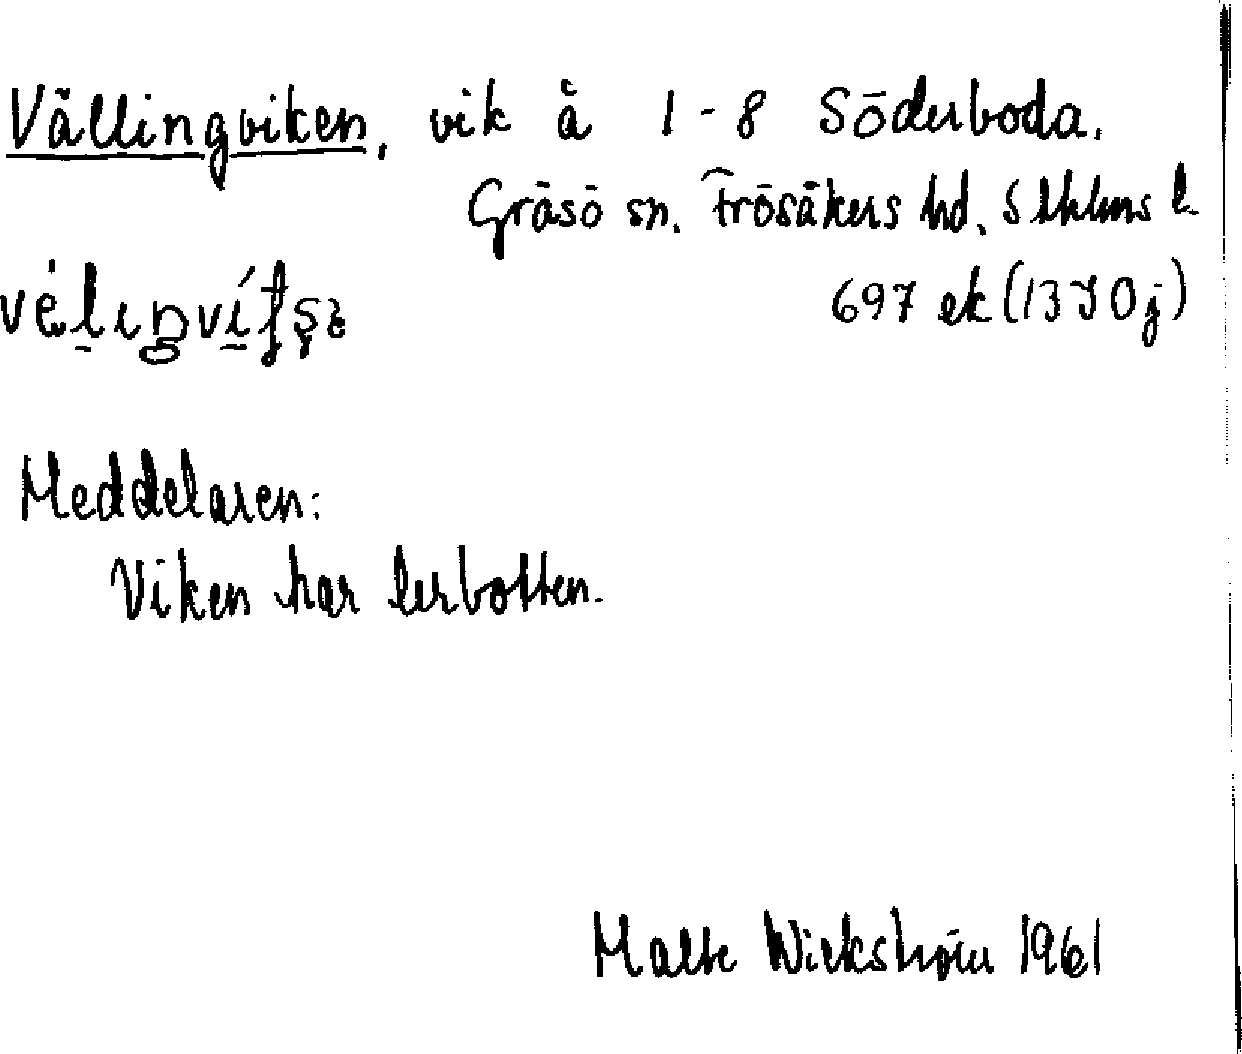 Vällingviken, vik å 1-8 Söderboda.
Gräsö sn. Frösåkers hd. Sthlms l.
697 ek (13J0j)
Meddelaren:
Viken har lerbotten.
Malte Wickström 1961